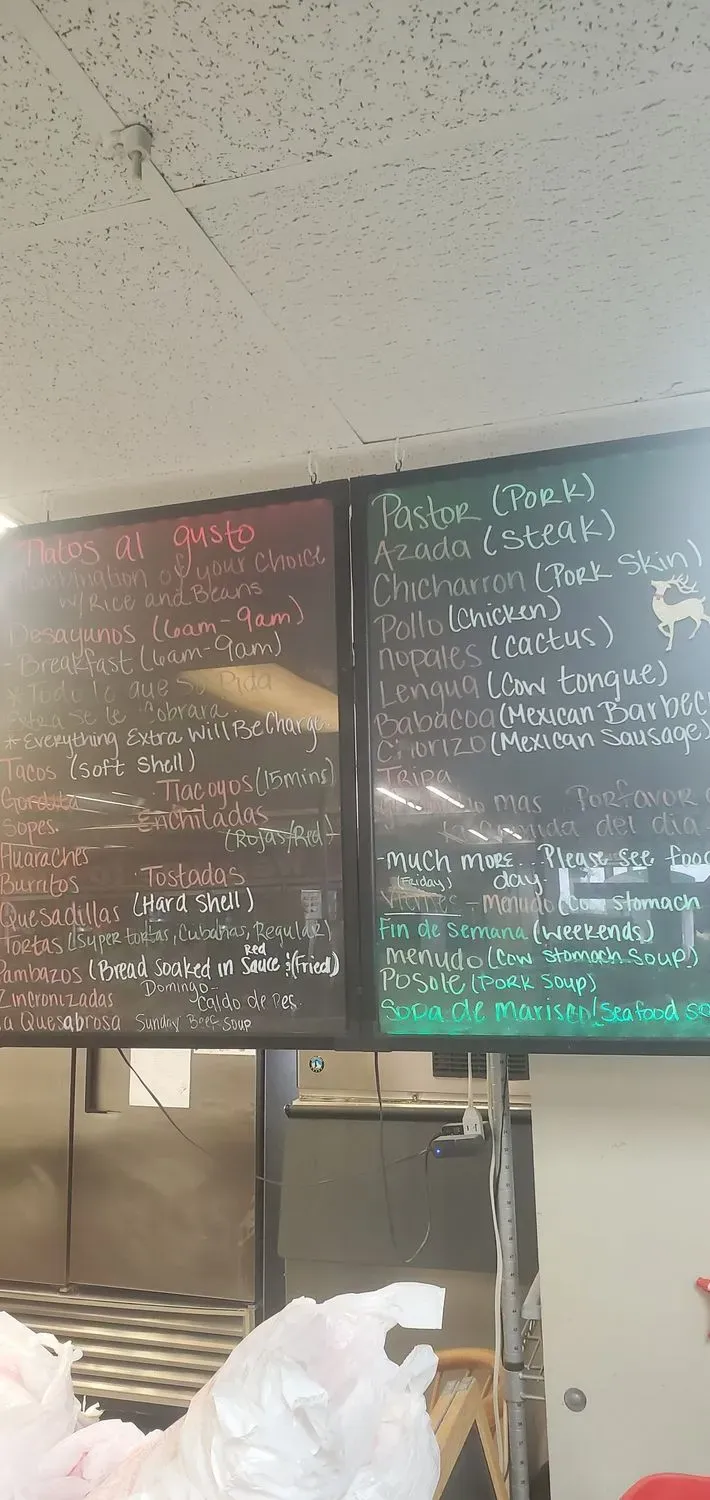 Platos al gusto
Combination of your choice
w/Rice and Beans
Desayunos (6am-9am)
-Breakfast (6am-9am)
*Todo lo que Pida
se le Cobrara
*Everything Extra Will Be Charge
Tacos (Soft Shell)
Gordita
Tlacoyos (15mins)
Sopes.
Enchiladas
(Rojas/Red)
Huaraches
Burritos
Tostadas
Quesadillas (Hard Shell)
Tortas (Super tortas, Cubanas, Regular)
Pambazos (Bread soaked in Red Sauce (Fried)
Zincronizadas
Domingo-
Caldo de Res
La Quesabrosa
Sunday Beef Soup
Pastor (Pork)
Azada (Steak)
Chicharron (Pork Skin)
Pollo (Chicken)
nopales (cactus)
Lengua (Cow tongue)
Babacoa (Mexican Barbec
Chorizo (Mexican Sausage)
Tripa
mas Porfavor
comida del dia
-much more... Please see food
day.
(Friday)
Viernes - Menudo (Cow Stomach
Fin de Semana (weekends)
menudo (Cow stomach Soup)
Posole (Pork Soup)
Sopa de marisco/Seafood so